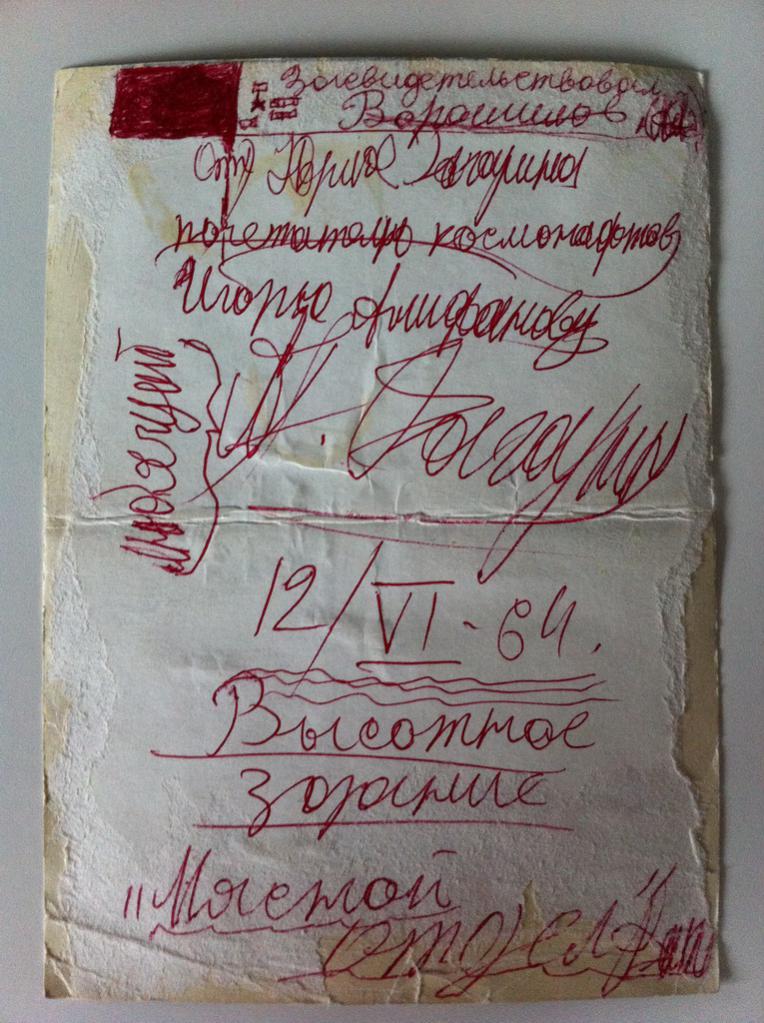 Засвидетельствовал
Ворошилов
От Юрия Гагарина
почетателю космонафтов
Игорю Алифанову
Любящий
Ю. Гагарин
12/VI-64.
Высотное
здание
"Мясной
отдел"